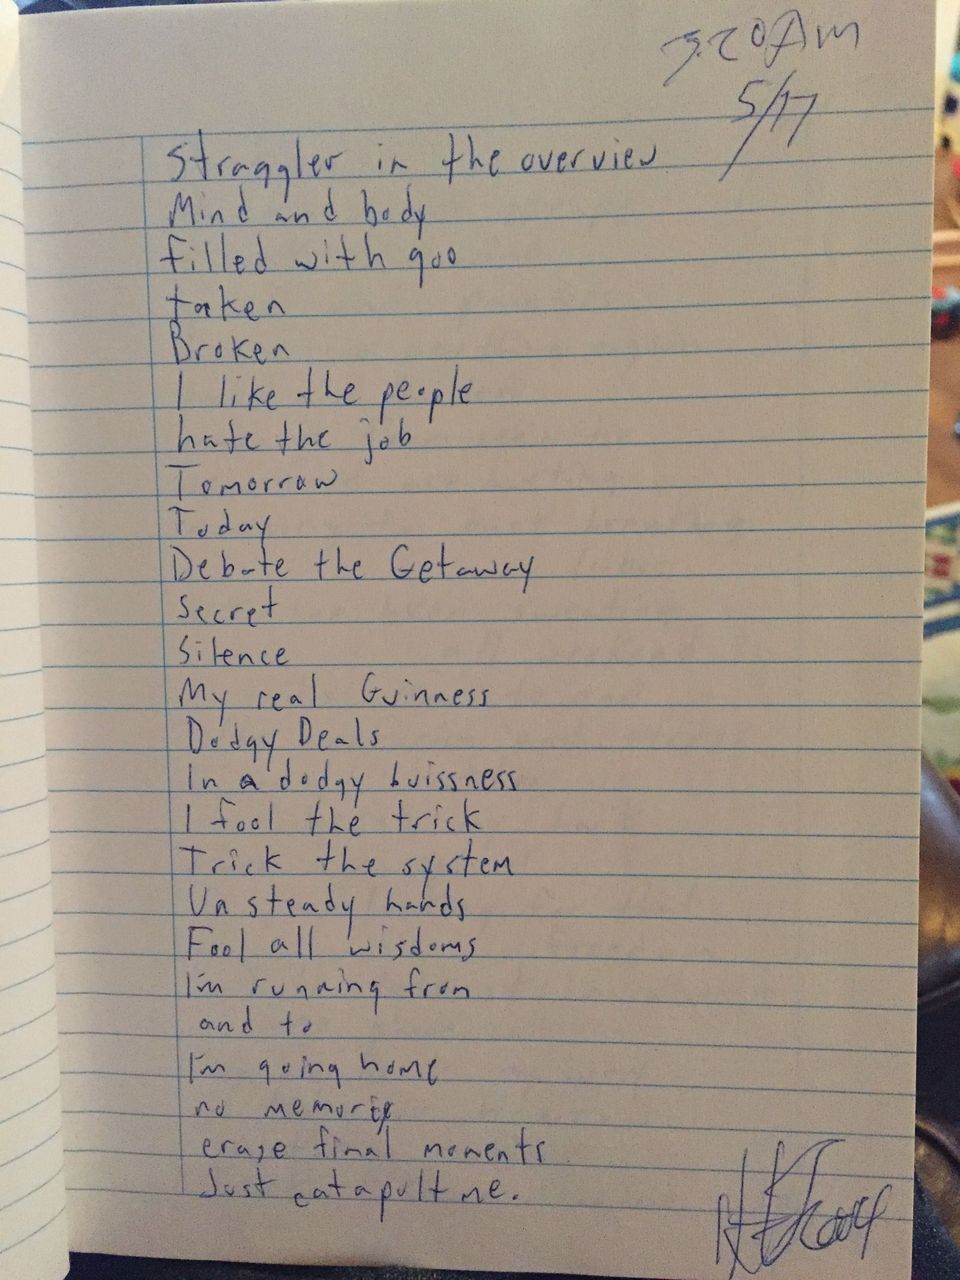 3:20AM
5/17
Straggler in the overview
Mind and body
filled with goo
taken
Broken
I like the people
hate the job
Tomorrow
Today
Debate the Getaway
Secret
Silence
My real Guinness
Dodgy Deals
In a dodgy buissness
I fool the trick
Trick the system
Unsteady hands
Fool all wisdoms
I'm running from
and to
I'm going home
no memories
erase final moments
Just catapult me.